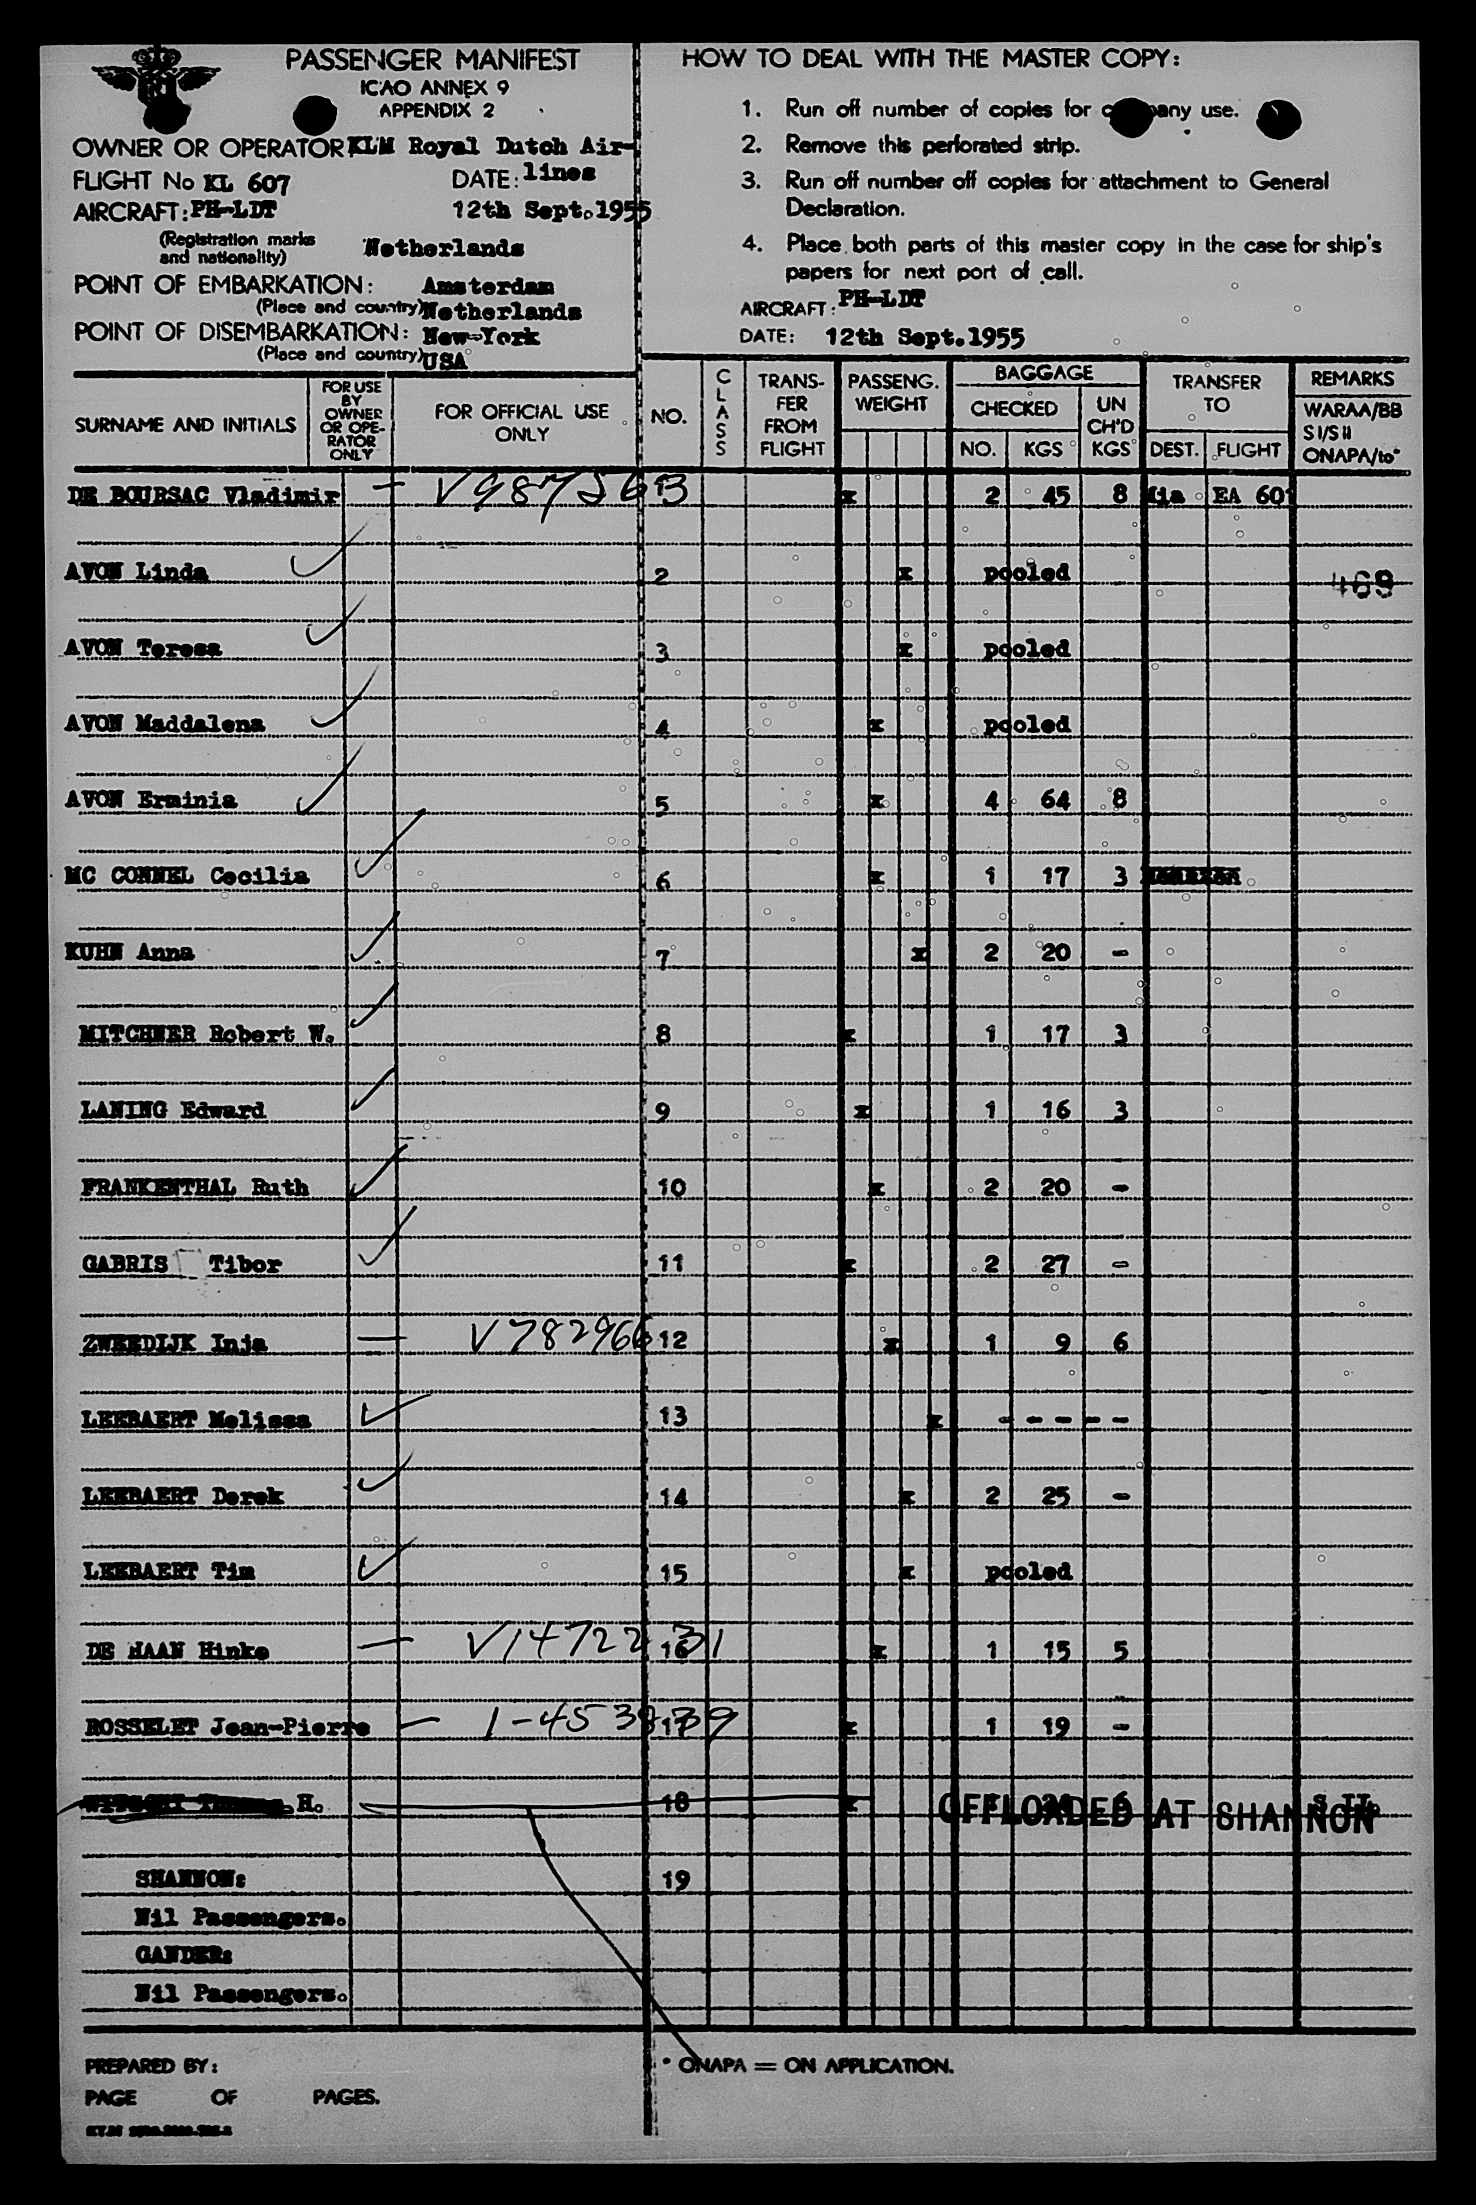 PASSENGER MANIFEST
ICAO ANNEX 9
APPENDIX 2
OWNER OR OPERATOR KLM Royal Dutch Air-
lines
FLIGHT No KL 607 DATE:
AIRCRAFT: PH-LDT 12th Sept.1955
(Registration marks
and nationality) Netherlands
POINT OF EMBARKATION: Amsterdam
(Place and country) Netherlands
POINT OF DISEMBARKATION: New-York
(Place and country) USA
HOW TO DEAL WITH THE MASTER COPY:
1. Run off number of copies for company use.
2. Remove this perforated strip.
3. Run off number off copies for attachment to General
Declaration.
4. Place both parts of this master copy in the case for ship's
papers for next port of call.
AIRCRAFT: PH-LDT
DATE: 12th Sept.1955
SURNAME AND INITIALS
FOR USE
BY
OWNER
OR OPE-
RATOR
ONLY
FOR OFFICIAL USE
ONLY
NO.
CLASS
TRANS-
FER
FROM
FLIGHT
PASSENG.
WEIGHT
BAGGAGE
CHECKED
NO. KGS
UN
CH'D
KGS
TRANSFER
TO
DEST. FLIGHT
REMARKS
WARAA/BB
SI/SII
ONAPA/to*
DE BOURSAC Vladimir — V987563 x 2 45 8 Mia EA 601
AVON Linda 2 x pooled 469
AVON Teresa 3 x pooled
AVON Maddalena 4 x pooled
AVON Erminia 5 x 4 64 8
MC CONNEL Cecilia 6 x 1 17 3
KUHN Anna 7 x 2 20 -
MITCHNER Robert W. 8 x 1 17 3
LANING Edward 9 x 1 16 3
FRANKENTHAL Ruth 10 x 2 20 -
GABRIS Tibor 11 x 2 27 -
ZWEEDIJK Inja — V782966 12 x 1 9 6
LEEBAERT Melissa 13 x - - - - -
LEEBAERT Derek 14 x 2 25 -
LEEBAERT Tim 15 x pooled
DE HAAN Hinke — V1472231 16 x 1 15 5
ROSSELET Jean-Pierre — 17 x 1 19 -
H. 18 x OFFLOADED AT SHANNON S II
SHANNON: 19
Nil Passengers.
GANDER:
Nil Passengers.
PREPARED BY:
PAGE OF PAGES.
* ONAPA = ON APPLICATION.